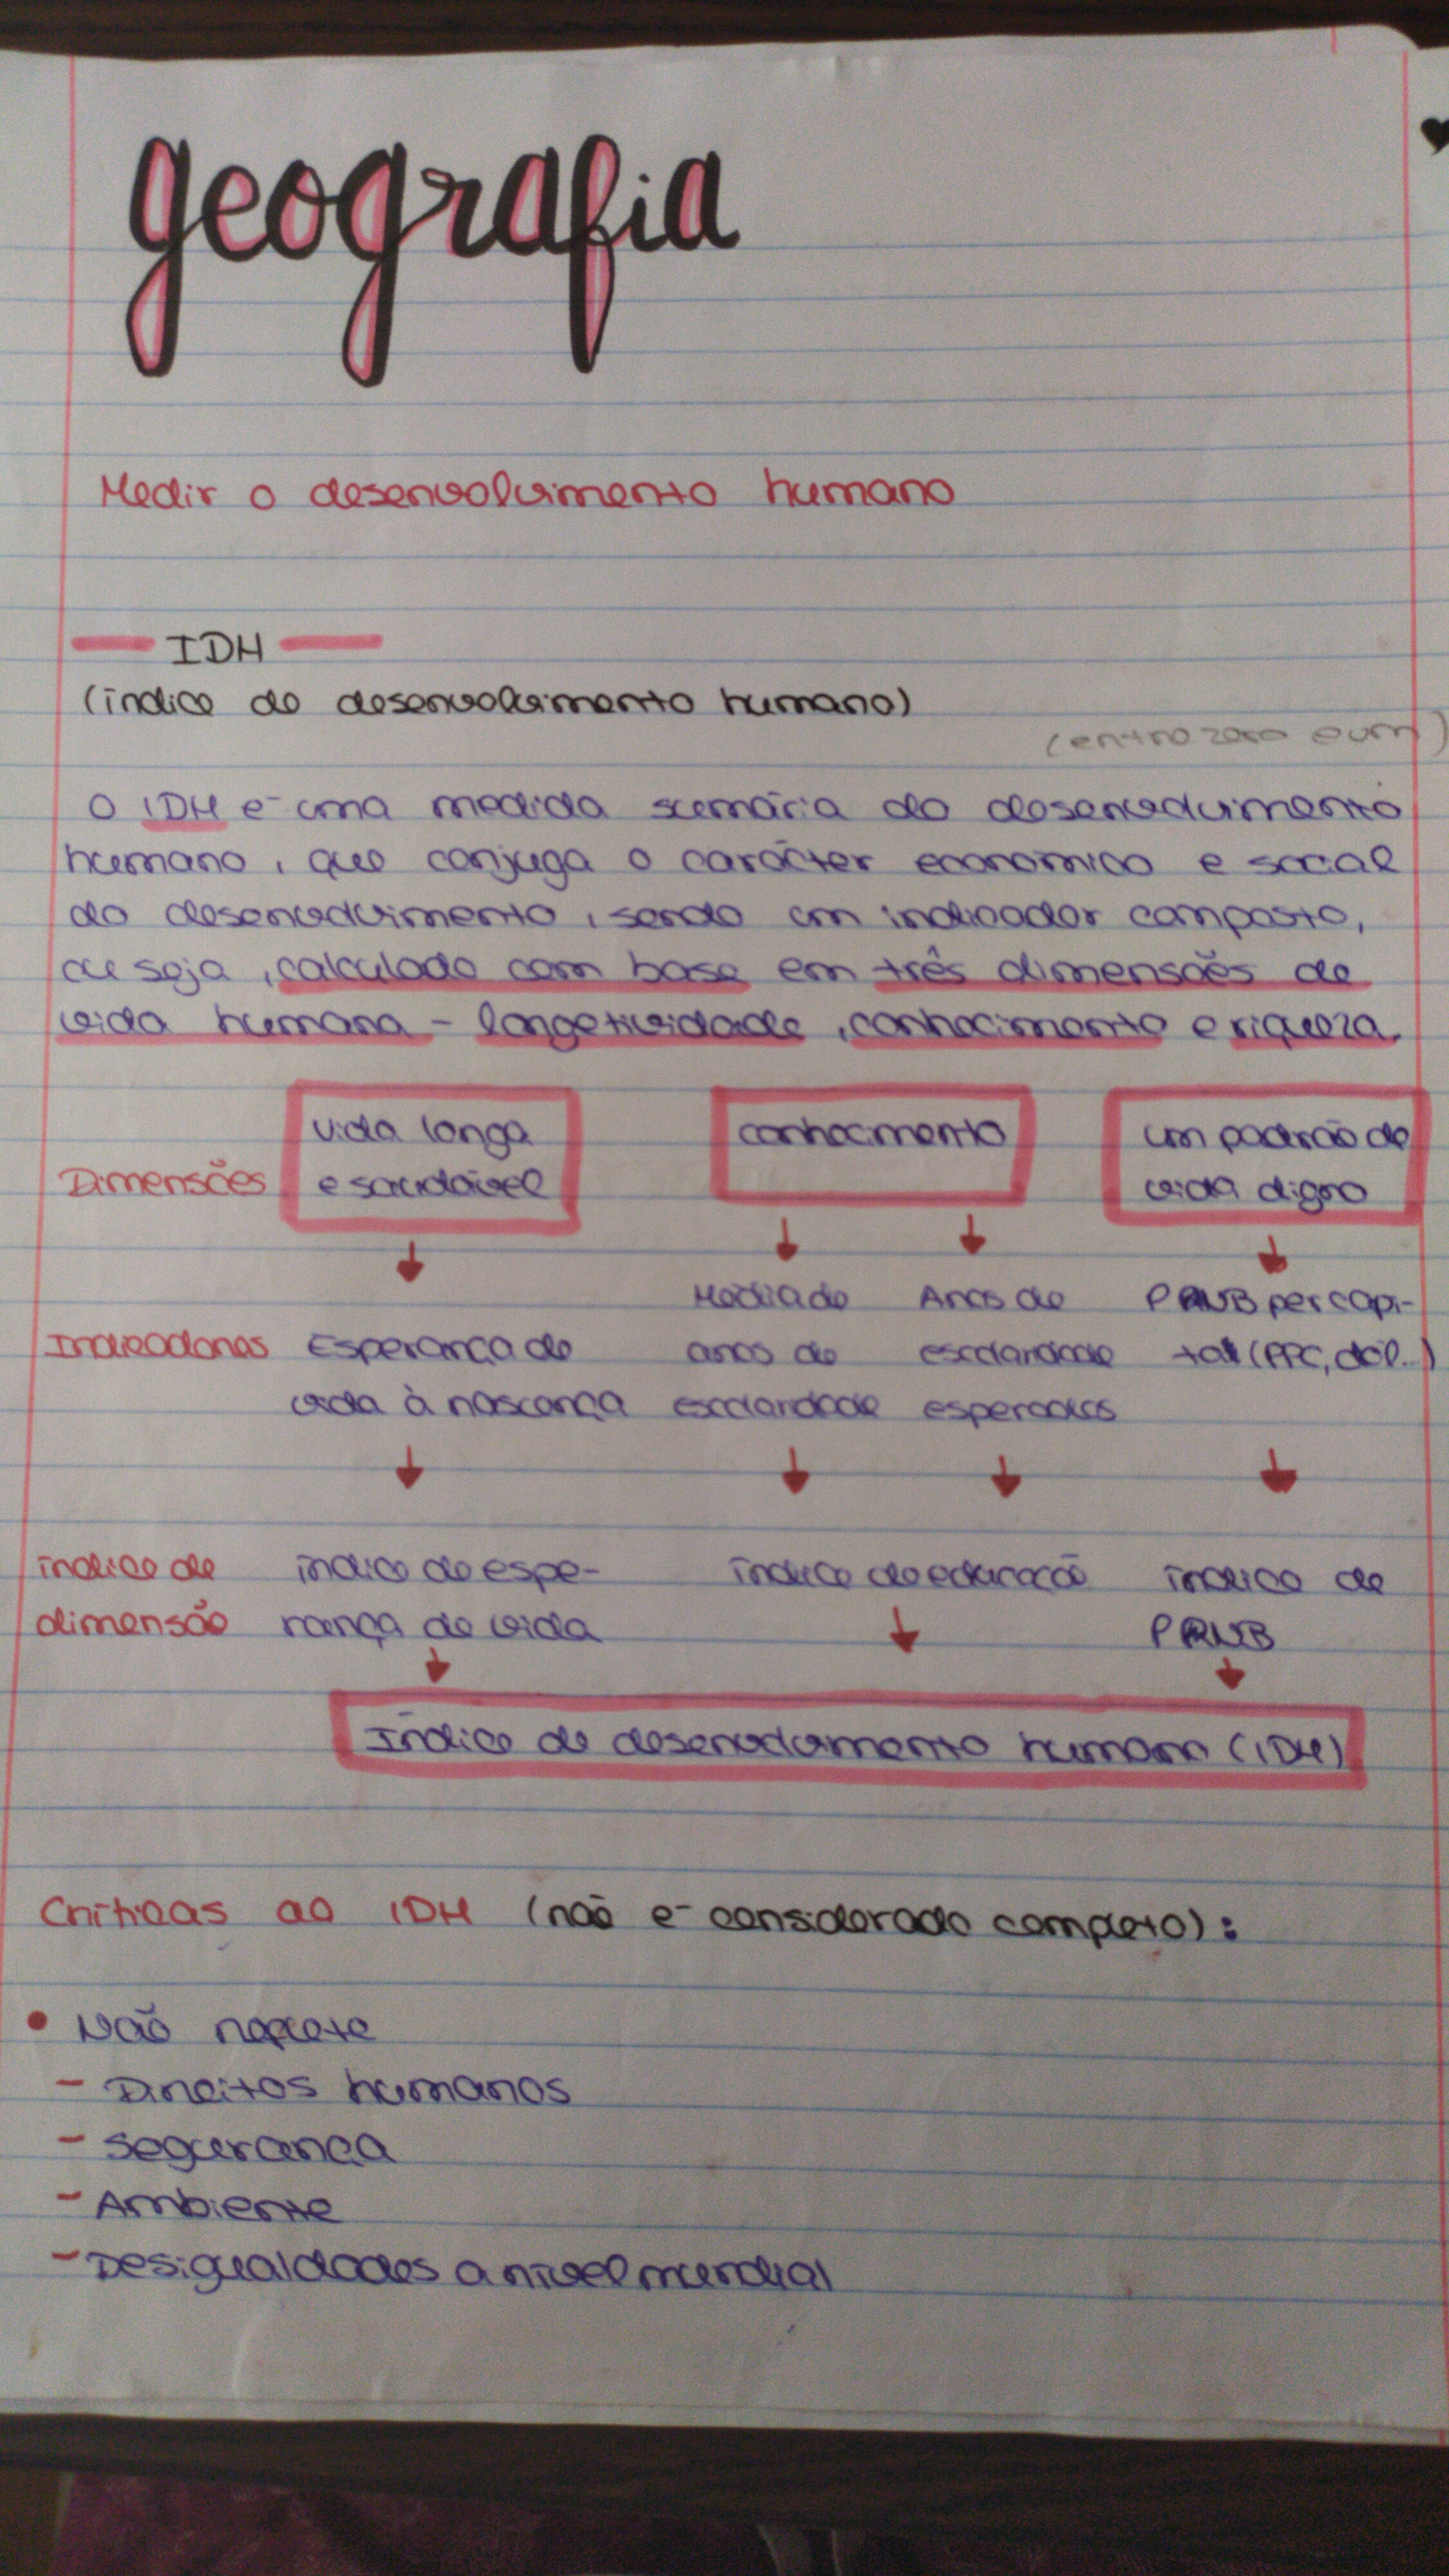 geografia
Medir o desenvolvimento humano
IDH
(índice de desenvolvimento humano)
(entre zero e um)
O IDH é uma medida sumária do desenvolvimento
humano, que conjuga o carácter económico e social
do desenvolvimento, sendo um indicador composto,
ou seja, calculado com base em três dimensões de
vida humana - longetividade, conhecimento e riqueza.
Dimensões
vida longa
e saudável
conhecimento
um padrão de
vida digno
Indicadores
Esperança de
vida à nascença
Média de
anos de
escolaridade
Anos de
escolaridade
esperados
RNB per capi-
ta (PPC, dól..)
índice de
dimensão
índice de espe-
rança de vida
índice de educação
índice de
RNB
Índice de desenvolvimento humano (IDH)
Críticas ao IDH (não é considerado completo):
• Não reflete
- Direitos humanos
- Segurança
- Ambiente
- Desigualdades a nível mundial